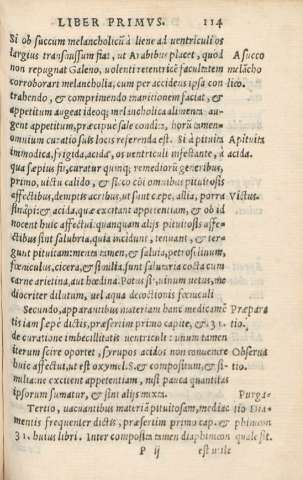 LIBER PRIMVS. 114
Si ob succum melancholicū à liene ad uentriculi os
largius transmissum fiat, ut Arabibus placet, quod A succo
non repugnat Galeno, uolenti retentricē facultatem melācho
corroborari melancholia, cum per accidens ipsa con lico.
trahendo, & comprimendo
appetitum augeat ideoq; melancholica alimenta au-
gent appetitum, præcipuè sale condita, horū tamen
omnium curatio suis locis referenda est. Si à pituita A pituita
immodica, frigida, acida, os uentriculi infestante, à acida.
qua sæpius fit, curatur quinq; remediorū generibus,
primo, uictu calido, & sicco cōi omnibus pituitosis
affectibus, demptis acribus, ut sunt cepe, allia, porra Victus.
sināpi: & acida, quæ excitant appetentiam, & ob id
nocent huic affectui. quanquam alijs pituitosis affe-
ctibus sint salubria. quia incidunt, tenuant, & ter-
gunt pituitam: menta tamen, & saluia, petroselinum,
fœniculus, cicera, & similia, sunt salutaria cocta cum
carne arietina, aut hœdina. Potus sit, uinum uetus, me
diocriter dilutum, uel aqua decoctionis fœniculi
Secundo, apparantibus materiam hanc medicamē Præpara
tis iam sæpe dictis, præsertim primo capite, & 31. tio.
de curatione imbecillitatis uentriculi: unum tamen
iterum scire oportet, syrupos acidos non conuenire Obserua
huic affectui, ut est oxymel. S. & compositum, & si- tio.
milia: ne excitent appetentiam, nisi pauca quantitas
ipsorum sumatur, & sint alijs mixta. Purga-
Tertio, uacuantibus materiā pituitosam, medica tio Dia-
mentis frequenter dictis, præsertim primo cap. & phinicon
31. huius libri. Inter composita tamen diaphinicon quale sit.
P ij est utile